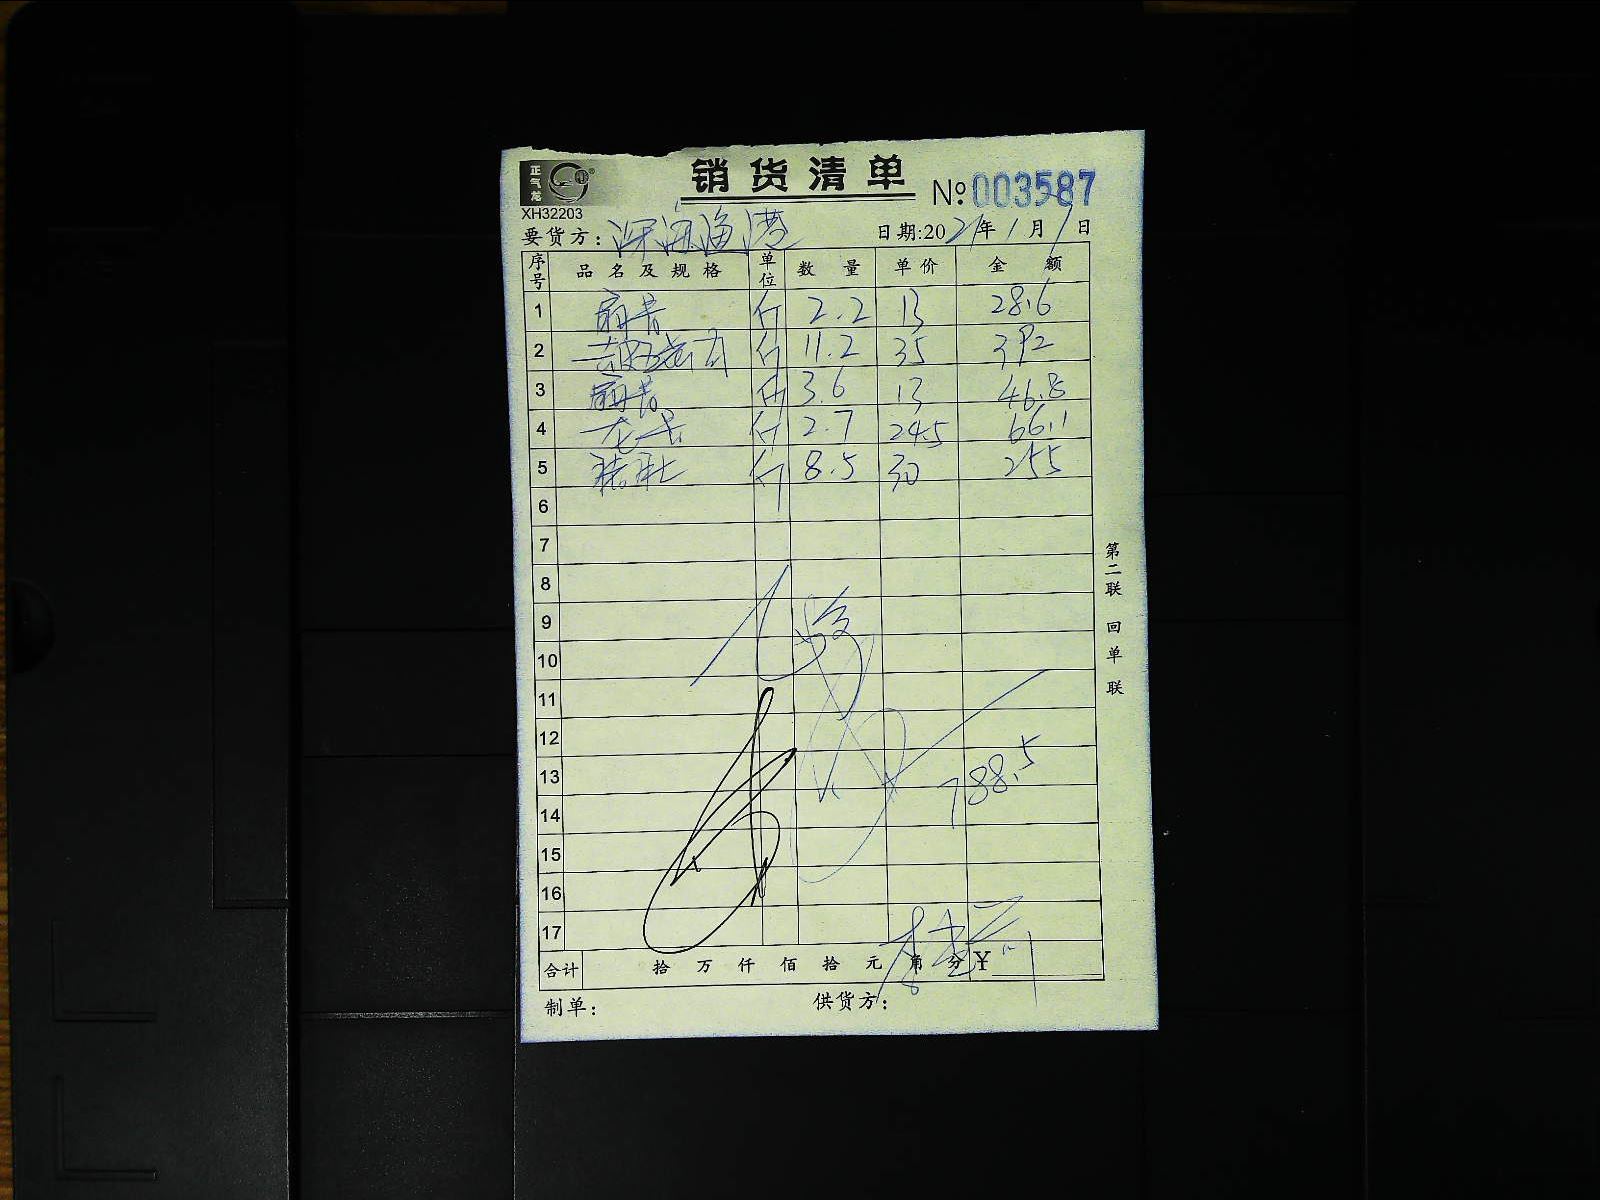 正气龙
销货清单
XH32203
№003587
要货方：深海渔港 日期:2021年1月1日
序号 品名及规格 单位 数量 单价 金额
1 扇骨 斤 2.2 13 28.6
2 斤 11.2 35 392
3 扇骨 斤 3.6 13 46.8
4 龙骨 斤 2.7 24.5 66.1
5 猪肚 斤 8.5 30 255
6
7
8
9
10
11
12
13
788.5
14
15
16
17
合计 拾 万 仟 佰 拾 元 角 分 ¥
制单： 供货方：
第二联 回单联